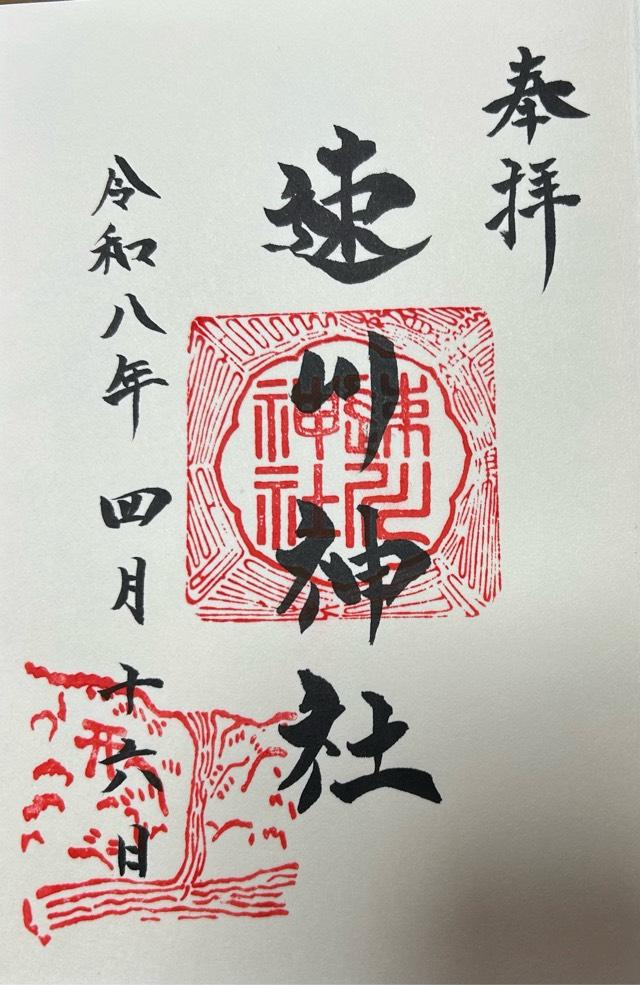 奉拝
速川神社
速川神社
令和八年 四月十六日